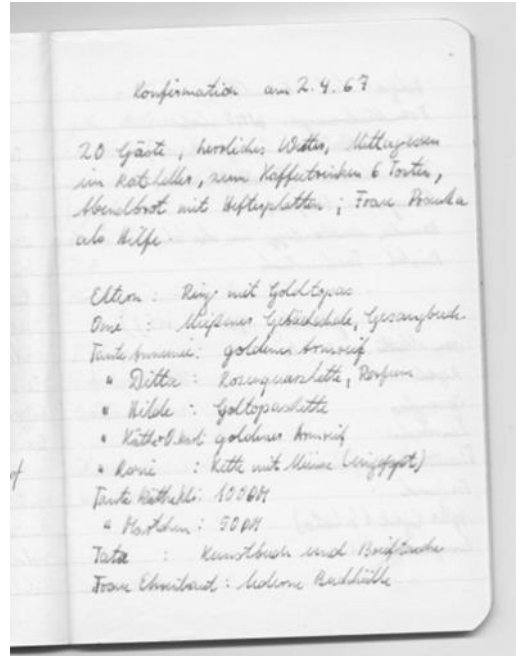 Konfirmation am 2.4.67
20 Gäste, herrliches Wetter, Mittagessen
im Ratskeller, zum Kaffeetrinken 6 Torten,
Abendbrot mit ; Frau
als Hilfe.
Eltern: Ring mit Goldtopas
Omi : Gebäckschale, Gesangbuch
Tante Annemie: goldener Armreif
" Ditta: Rosenquarzkette, Parfum
" Hilde: Goltopaskette
" goldener Armreif
" : Kette mit Münze
Tante : 100DM
" : 50DM
Tata : Kunstbuch und Brieftasche
Frau : lederne Buchhülle